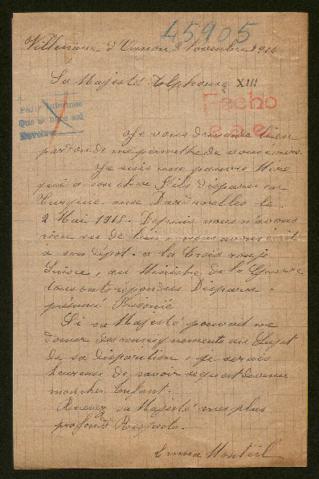 45905
Villeneuve d' 3 Novembre 19
Sa Majesté Alphonse XIII
Fecho
Je vous demande bien
pardon de me permettre de vous
Je suis une pauvre Mère
qui a son cher Fils disparu en
Turquie aux Dardanelles le
2 Mai 1915. Depuis nous n'avons
rien su de lui. nous avons écrit
a son dépot. a la Croix rouje
Suisse, au Ministre de la Guerre
tous ont répondu Disparu
présumé Prisonié
Si sa Majesté pouvait me
donner des au Sujet
de sa disparition. Je serais
heureuse de savoir
mon cher Enfant.
Recevez sa Majesté mes plus
profonds Respects.
Emma Monteil